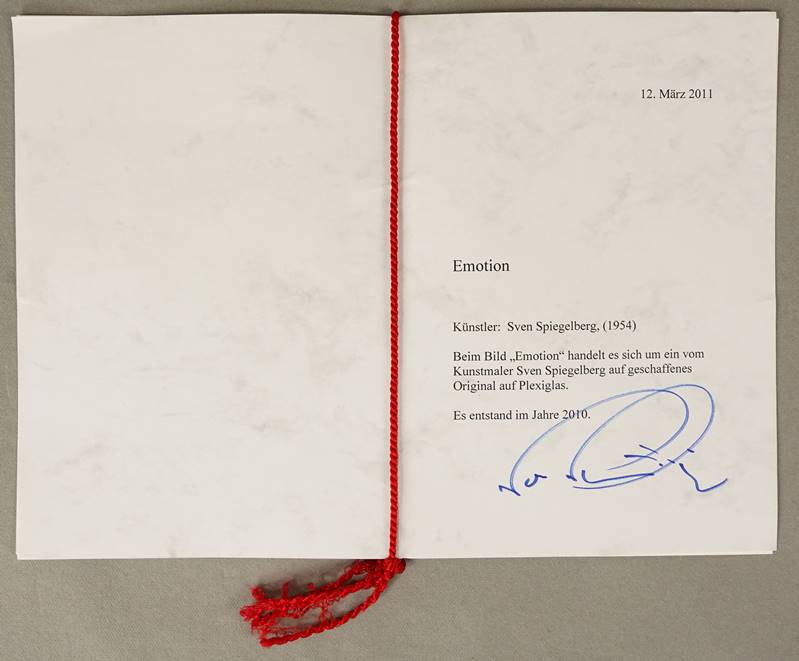 12. März 2011
Emotion
Künstler: Sven Spiegelberg, (1954)
Beim Bild „Emotion“ handelt es sich um ein vom
Kunstmaler Sven Spiegelberg auf geschaffenes
Original auf Plexiglas.
Es entstand im Jahre 2010.